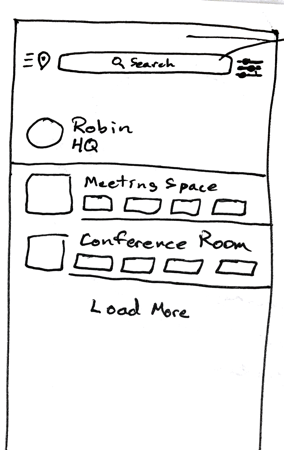 Search
Robin
HQ
Meeting Space
Conference Room
Load More